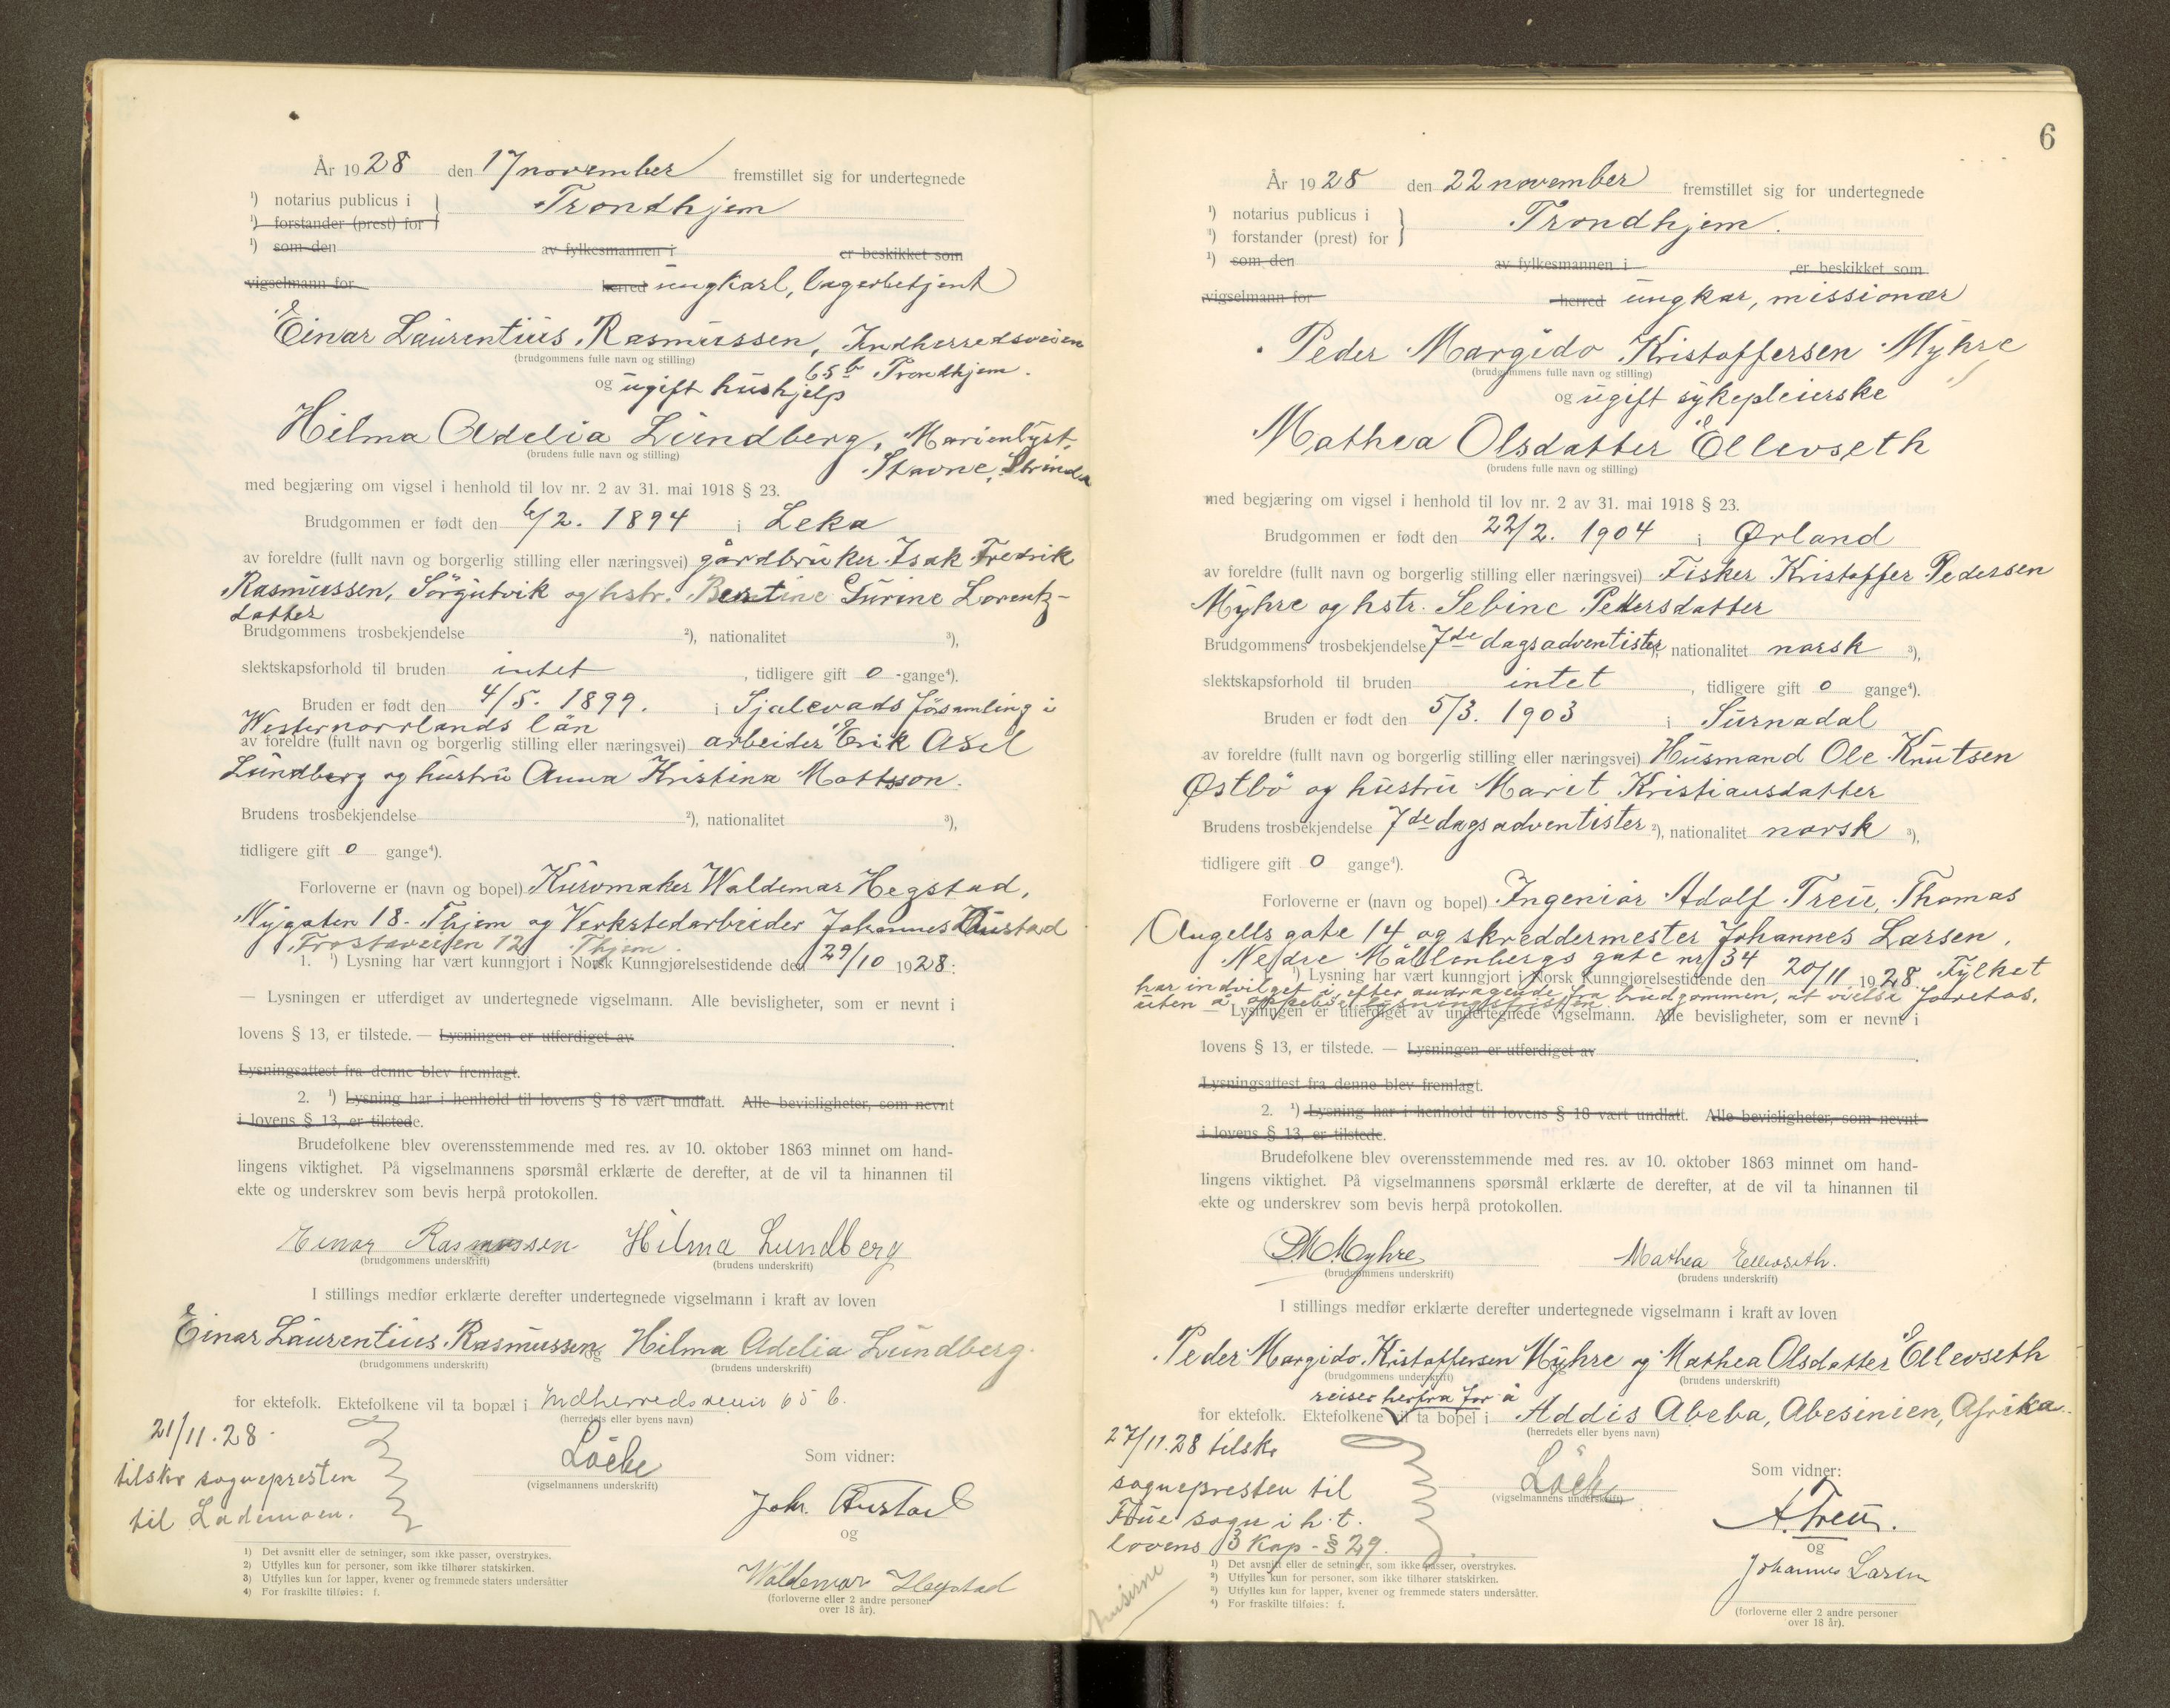 År 1928 den 17 november fremstillet sig for undertegnede
¹) notarius publicus i } Trondhjem
¹) forstander (prest) for
¹) som den av fylkesmannen i er beskikket som
vigselmann for herred ungkarl, lagerbetjent
Einar Laurentius Rasmussen, Indherredsveien
(brudgommens fulle navn og stilling) 65 b Trondhjem.
og ugift hushjelp
Hilma Adelia Lundberg, Marienlyst,
(brudens fulle navn og stilling) Stavne, Strinda
med begjæring om vigsel i henhold til lov nr. 2 av 31. mai 1918 § 23.
Brudgommen er født den 6/2. 1894 i Leka
av foreldre (fullt navn og borgerlig stilling eller næringsvei) gårdbruker Isak Fredrik
Rasmussen, Sörgutvik og hstr. Bentine Surine Lorentz-
datter
Brudgommens trosbekjendelse ²), nationalitet ³),
slektskapsforhold til bruden intet, tidligere gift 0 gange⁴).
Bruden er født den 4/5. 1899. i Sjalevads församling i
Westernorrlands län
av foreldre (fullt navn og borgerlig stilling eller næringsvei) arbeider Erik Axel
Lundberg og hustru Anna Kristina Mattsson.
Brudens trosbekjendelse ²), nationalitet ³),
tidligere gift 0 gange⁴).
Forloverne er (navn og bopel) Kurvmaker Waldemar Hegstad,
Nygaten 18. Thjem og Verkstedarbeider Johannes Austad
Frostaveien 12 Thjem.
1. ¹) Lysning har vært kunngjort i Norsk Kunngjørelsestidende den 29/10 1928:
— Lysningen er utferdiget av undertegnede vigselmann. Alle bevisligheter, som er nevnt i
lovens § 13, er tilstede. — Lysningen er utferdiget av
Lysningsattest fra denne blev fremlagt.
2. ¹) Lysning har i henhold til lovens § 18 vært undlatt. Alle bevisligheter, som nevnt
i lovens § 13, er tilstede.
Brudefolkene blev overensstemmende med res. av 10. oktober 1863 minnet om hand-
lingens viktighet. På vigselmannens spørsmål erklærte de derefter, at de vil ta hinannen til
ekte og underskrev som bevis herpå protokollen.
Einar Rasmussen Hilma Lundberg
(brudgommens underskrift) (brudens underskrift)
I stillings medfør erklærte derefter undertegnede vigselmann i kraft av loven
Einar Laurentius Rasmussen og Hilma Adelia Lundberg.
(brudgommens underskrift) (brudens underskrift)
for ektefolk. Ektefolkene vil ta bopæl i Indherredsveien 65 b.
(herredets eller byens navn)
21/11.28.
tilskr sognepresten
til Lademoen.
Löche
(vigselmannens underskrift)
Som vidner:
Joh. Austad
og
Waldemar Hegstad
(forloverne eller 2 andre personer
over 18 år).
1) Det avsnitt eller de setninger, som ikke passer, overstrykes.
2) Utfylles kun for personer, som ikke tilhører statskirken.
3) Utfylles kun for lapper, kvener og fremmede staters undersåtter
4) For fraskilte tilføies: f.
6
År 1928 den 22 november fremstillet sig for undertegnede
¹) notarius publicus i } Trondhjem.
¹) forstander (prest) for
¹) som den av fylkesmannen i er beskikket som
vigselmann for herred ungkar, missionær
Peder Margido Kristoffersen Myhre
(brudgommens fulle navn og stilling)
og ugift sykepleierske
Mathea Olsdatter Ellevseth
(brudens fulle navn og stilling)
med begjæring om vigsel i henhold til lov nr. 2 av 31. mai 1918 § 23.
Brudgommen er født den 22/2. 1904 i Ørland
av foreldre (fullt navn og borgerlig stilling eller næringsvei) Fisker Kristoffer Pedersen
Myhre og hstr. Sebine Petersdatter
Brudgommens trosbekjendelse 7de dagsadventister, nationalitet norsk ³),
slektskapsforhold til bruden intet, tidligere gift 0 gange⁴).
Bruden er født den 5/3. 1903 i Surnadal
av foreldre (fullt navn og borgerlig stilling eller næringsvei) Husmand Ole Knutsen
Østbö og hustru Marit Kristiansdatter
Brudens trosbekjendelse 7de dagsadventister ²), nationalitet norsk ³),
tidligere gift 0 gange⁴).
Forloverne er (navn og bopel) Ingeniör Adolf Treu, Thomas
Angells gate 14 og skreddermester Johannes Larsen,
Nedre Möllenbergs gate nr 34
¹) Lysning har vært kunngjort i Norsk Kunngjørelsestidende den 20/11 1928. Fylket
har indvilget i, efter andragende fra brudgommen, at vielse foretas,
uten å lysningsfristen.
— Lysningen er utferdiget av undertegnede vigselmann. Alle bevisligheter, som er nevnt i
lovens § 13, er tilstede. — Lysningen er utferdiget av
Lysningsattest fra denne blev fremlagt.
2. ¹) Lysning har i henhold til lovens § 18 vært undlatt. Alle bevisligheter, som nevnt
i lovens § 13, er tilstede.
Brudefolkene blev overensstemmende med res. av 10. oktober 1863 minnet om hand-
lingens viktighet. På vigselmannens spørsmål erklærte de derefter, at de vil ta hinannen til
ekte og underskrev som bevis herpå protokollen.
P.M. Myhre Mathea Ellevseth.
(brudgommens underskrift) (brudens underskrift)
I stillings medfør erklærte derefter undertegnede vigselmann i kraft av loven
Peder Margido Kristoffersen Myhre og Mathea Olsdatter Ellevseth
(brudgommens underskrift) (brudens underskrift)
reiser herfra for å
for ektefolk. Ektefolkene vil ta bopel i Addis Abeba, Abesinien, Afrika.
(herredets eller byens navn)
27/11.28 tilskr
sognepresten til
Frue sogn i h.t.
lovens 3 kap - § 29.
Löche
(vigselmannens underskrift)
Som vidner:
A. Treu.
og
Johannes Larsen
(forloverne eller 2 andre personer
over 18 år).
1) Det avsnitt eller de setninger, som ikke passer, overstrykes.
2) Utfylles kun for personer, som ikke tilhører statskirken.
3) Utfylles kun for lapper, kvener og fremmede staters undersåtter.
4) For fraskilte tilføies: f.